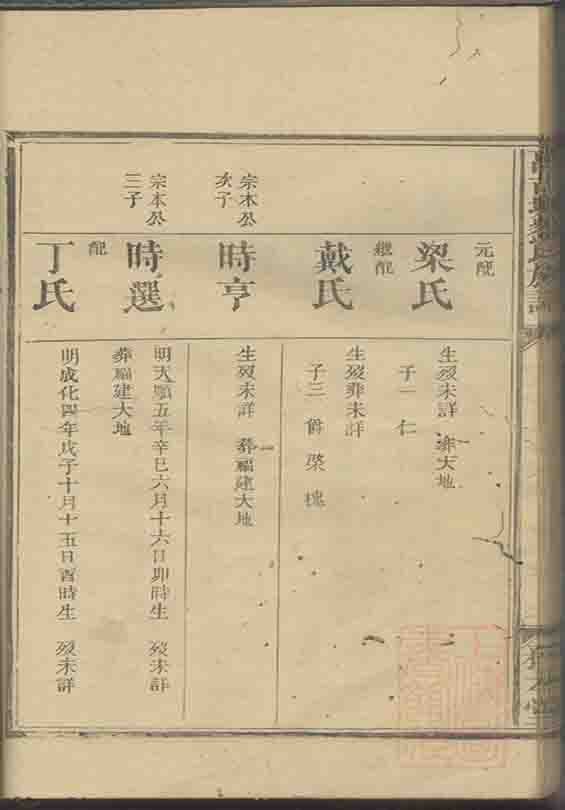 元配
梁氏
生歿未詳 葬大地
子一 仁
繼配
戴氏
生歿葬未詳
子三 爵 榮 槐
宗本公
次子
時亨
生歿未詳 葬福建大地
宗本公
三子
時選
明天順五年辛巳六月十六日卯時生 歿未詳
葬福建大地
配
丁氏
明成化四年戊子十月十五日酉時生 歿未詳